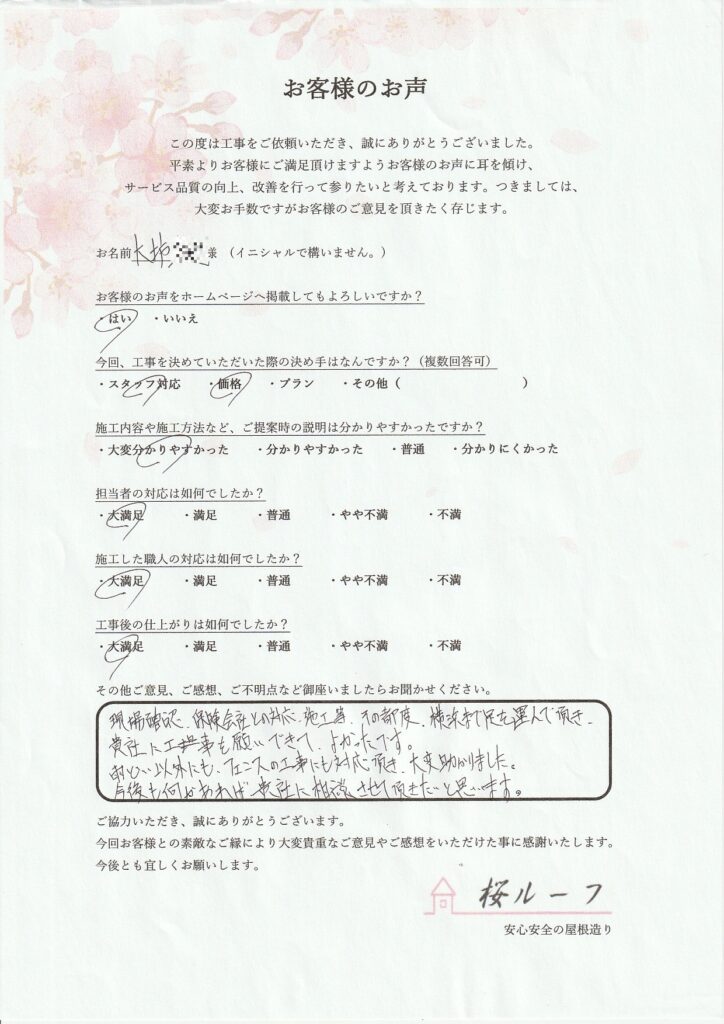 お客様のお声
この度は工事をご依頼いただき、誠にありがとうございました。
平素よりお客様にご満足頂けますようお客様のお声に耳を傾け、
サービス品質の向上、改善を行って参りたいと考えております。つきましては、
大変お手数ですがお客様のご意見を頂きたく存じます。
お名前 大 様 （イニシャルで構いません。）
お客様のお声をホームページへ掲載してもよろしいですか？
・はい ・いいえ
今回、工事を決めていただいた際の決め手はなんですか？（複数回答可）
・スタッフ対応 ・価格 ・プラン ・その他（ ）
施工内容や施工方法など、ご提案時の説明は分かりやすかったですか？
・大変分かりやすかった ・分かりやすかった ・普通 ・分かりにくかった
担当者の対応は如何でしたか？
・大満足 ・満足 ・普通 ・やや不満 ・不満
施工した職人の対応は如何でしたか？
・大満足 ・満足 ・普通 ・やや不満 ・不満
工事後の仕上がりは如何でしたか？
・大満足 ・満足 ・普通 ・やや不満 ・不満
その他ご意見、ご感想、ご不明点など御座いましたらお聞かせください。
現場確認、保険会社との対応、施工等、その都度、横浜まで足を運んで頂き、
貴社に工事を願いできて、よかったです。
以外にも、フェンスの工事にも対応頂き、大変助かりました。
今後も何かあれば貴社に相談させて頂きたいと思います。
ご協力いただき、誠にありがとうございます。
今回お客様との素敵なご縁により大変貴重なご意見やご感想をいただけた事に感謝いたします。
今後とも宜しくお願いします。
桜ルーフ
安心安全の屋根造り